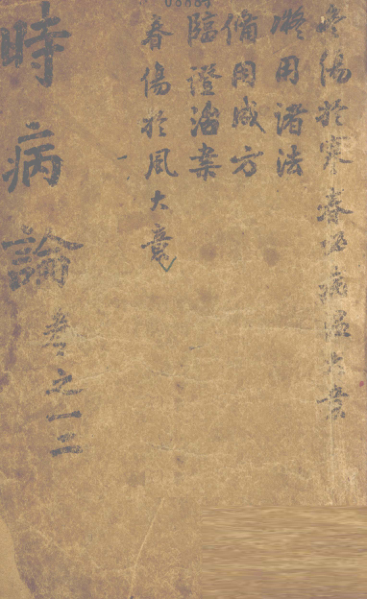 冬傷於寒春必病溫大意
擬用諸法
備用成方
臨證治案
春傷於風大意
時病論
卷之一二